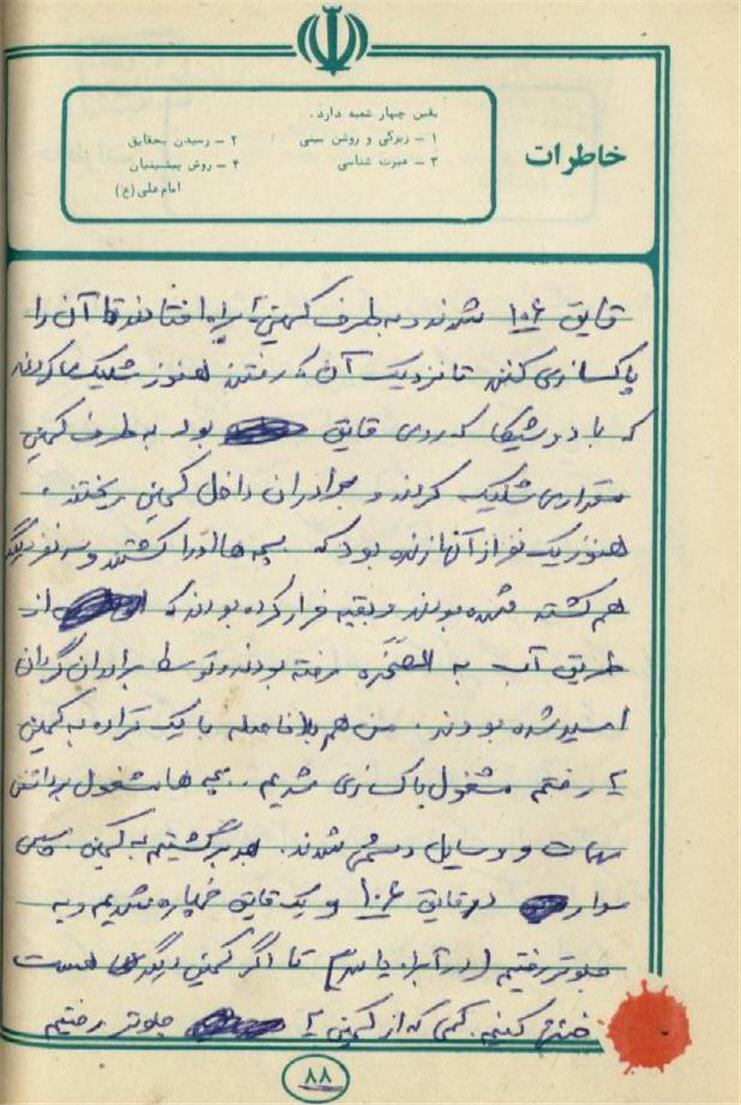 خاطرات
یقین چهار شعبه دارد.
۱ ـ زیرکی و روشن بینی ۲ ـ رسیدن بحقایق
۳ ـ عبرت شناسی ۴ ـ روش پیشینیان
امام علی (ع)
قایق ۱۰۶ شدند و به طرف کمین براه افتادند تا آن را
پاکسازی کنند تا نزدیک آن که رفتند هنوز شلیک میکردند
که با دوشیکا که روی قایق بود به طرف کمین
مقداری شلیک کردند و برادران داخل کمین ریختند.
هنوز یک نفر از آنها زنده بود که بچه ها او را کشتند و سه نفر دیگر
هم کشته شده بودند و بقیه فرار کرده بودند که از
طریق آب به الصخره رفته بودند و توسط برادران گردان
اسیر شده بودند. من هم بلافاصله با یک به کمین
رفتم مشغول پاکسازی شدیم. بچه ها مشغول برداشتن
مهمات و وسایل دشمن شدند. برگشتیم به کمین. سپس
سوار در قایق ۱۰۶ و یک قایق خمپاره شدیم و به
جلوتر رفتیم تا اگر کمین دیگر هست
خنثی کنیم. کمی که از کمین جلوتر رفتیم
۸۸